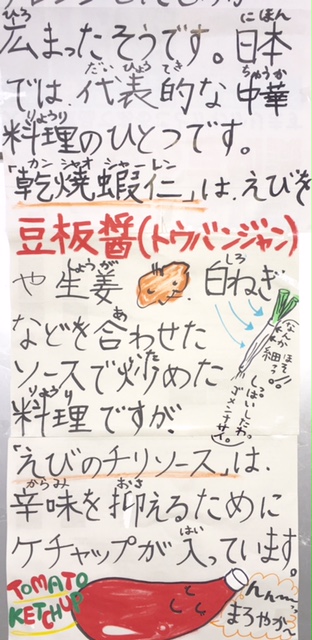 広まったそうです。日本
では、代表的な中華
料理のひとつです。
「乾焼蝦仁」は、えびを
豆板醤(トウバンジャン)
や生姜 白ねぎ
などを合わせた
ソースで炒めた
料理ですが、
「えびのチリソース」は、
辛味を抑えるために
ケチャップが入っています。
なんか
細っ。
しっぱいしたわ。
ゴメンナサイ。
TOMATO
KETCHUP
んん〜
まろやか